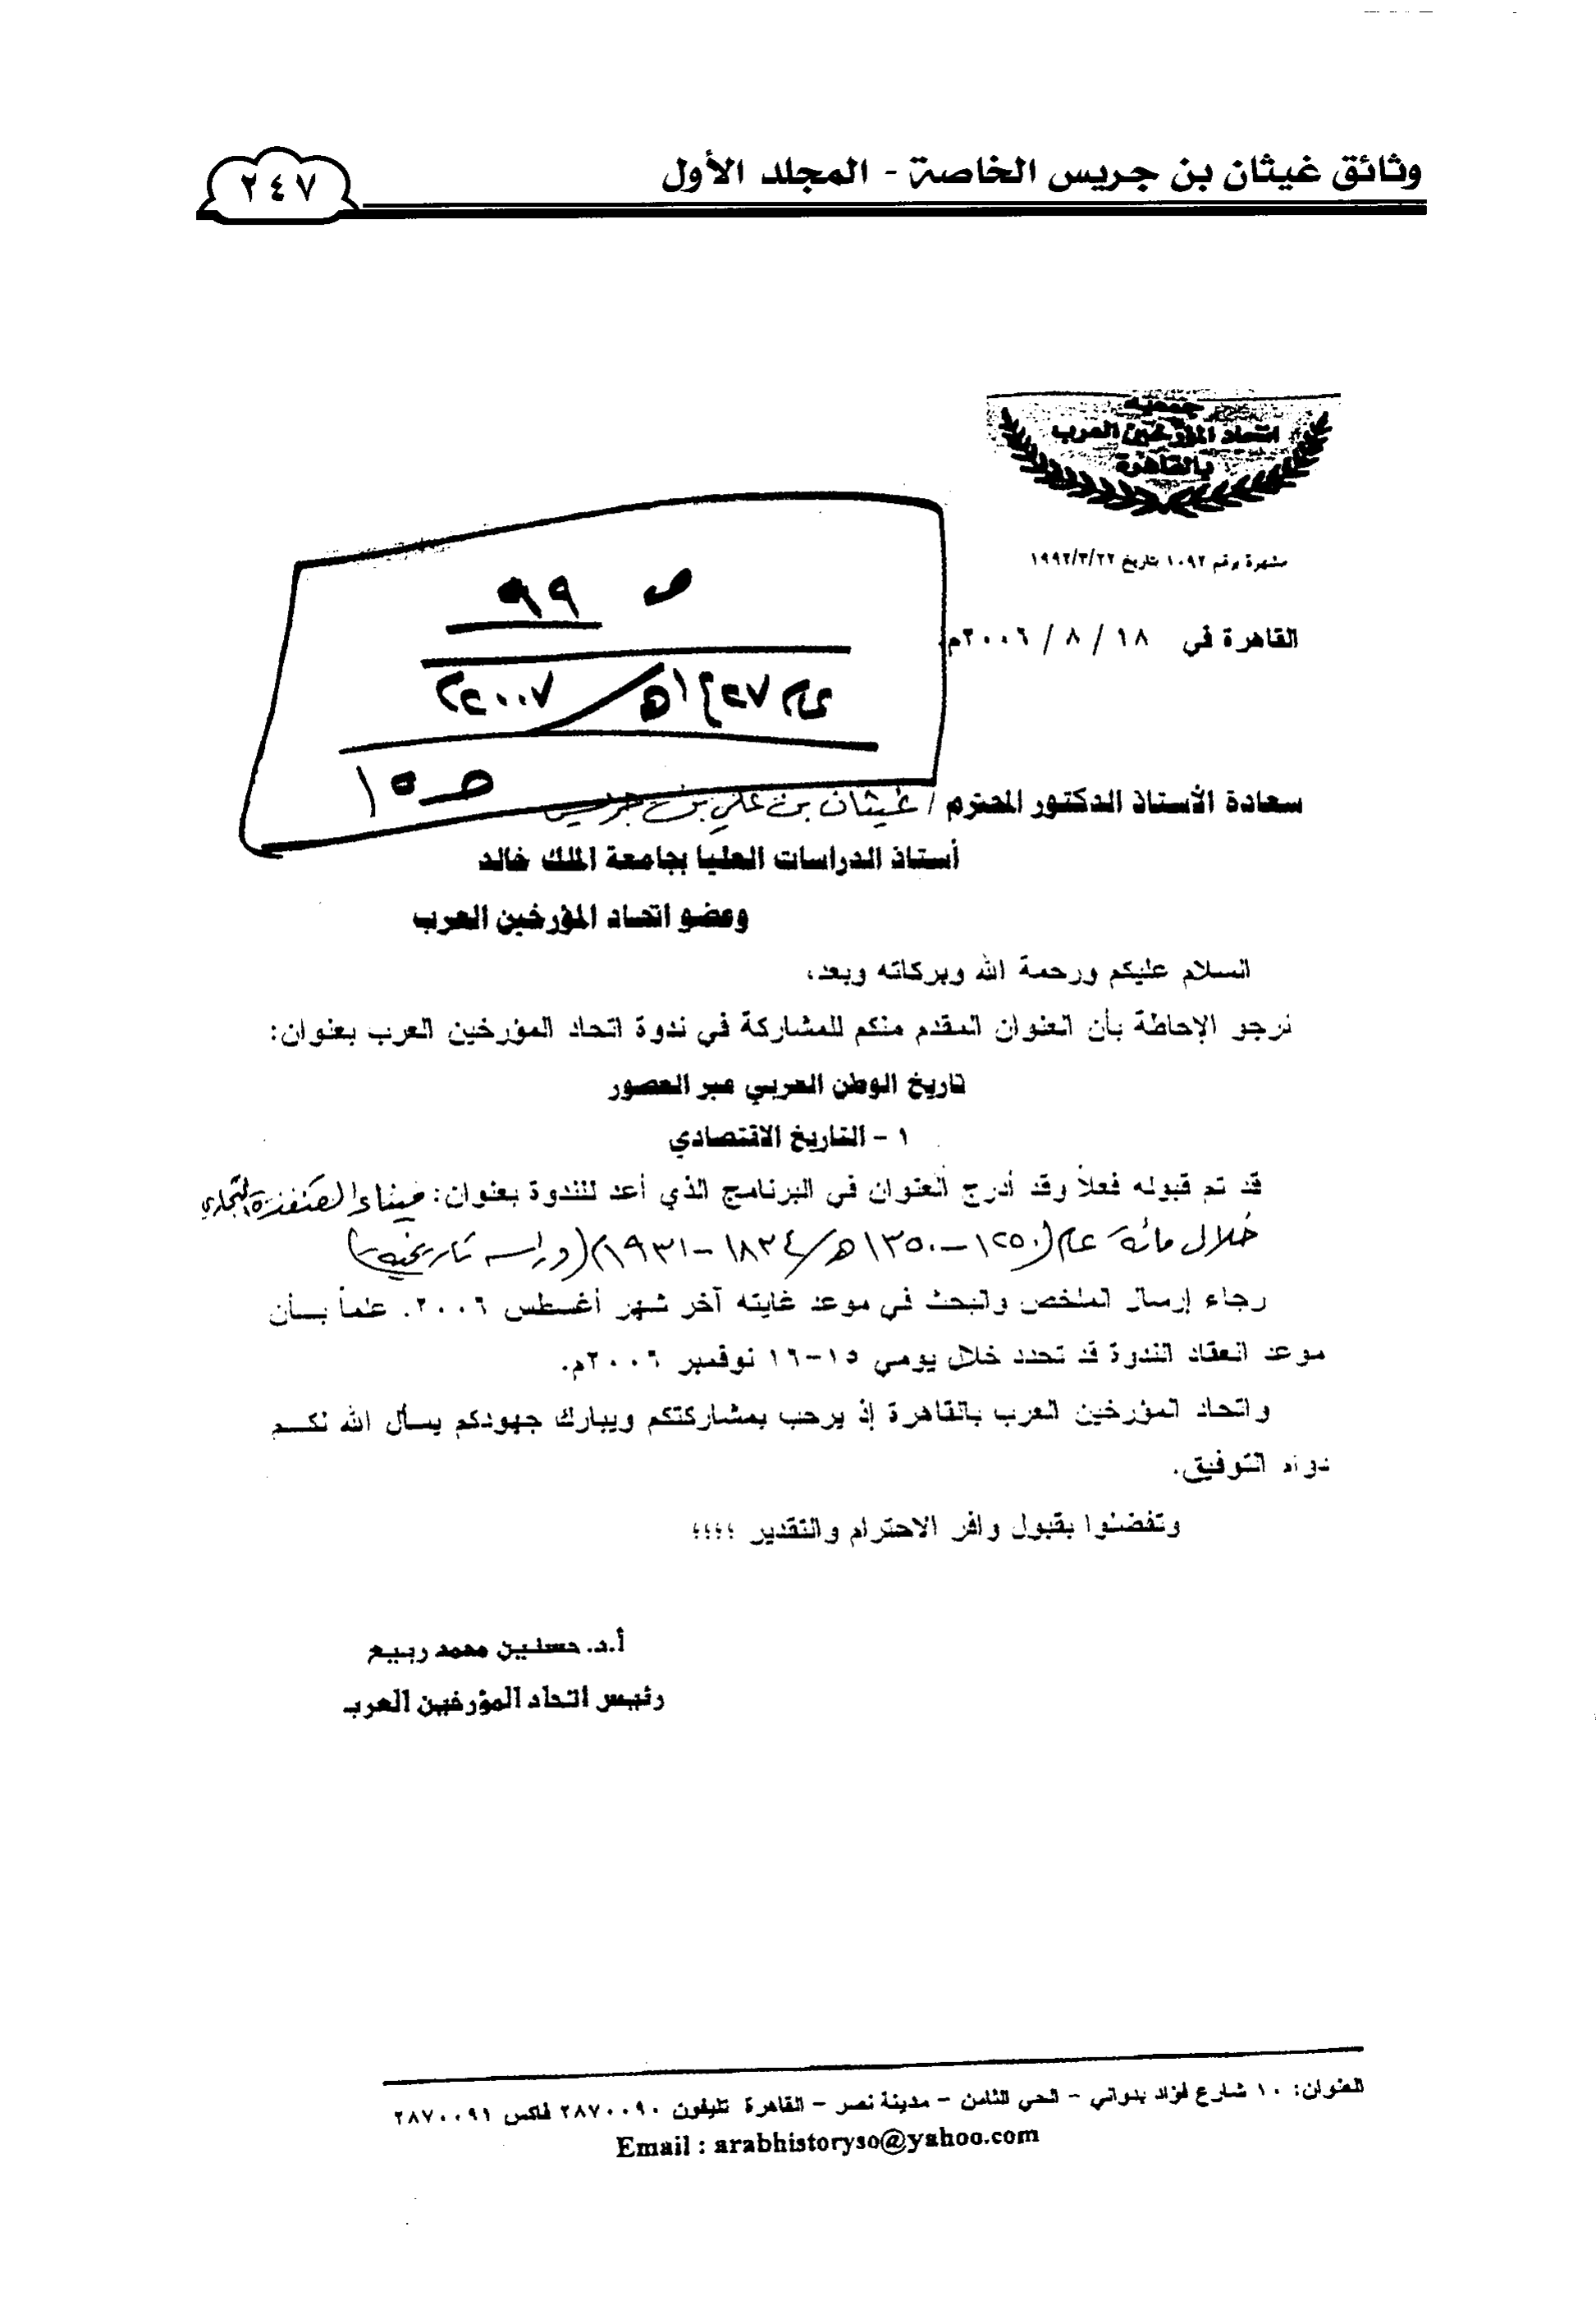 وثائق غيثان بن جريس الخاصة - المجلد الأول
٢٤٧
جمعية
اتحاد المؤرخين العرب
بالقاهرة
مشهرة برقم ١٠٩٢ بتاريخ ١٩٩٢/٣/٢٢
القاهرة في ١٨ / ٨ / ٢٠٠٦م
ص ٩٩
١٤٢٧هـ/ ٢٠٠٧م
ص ١٥
سعادة الأستاذ الدكتور المحترم / غيثان بن علي بن جريس
أستاذ الدراسات العليا بجامعة الملك خالد
وعضو اتحاد المؤرخين العرب
السلام عليكم ورحمة الله وبركاته وبعد،
نرجو الإحاطة بأن العنوان المقدم منكم للمشاركة في ندوة اتحاد المؤرخين العرب بعنوان:
تاريخ الوطن العربي عبر العصور
١ - التاريخ الاقتصادي
قد تم قبوله فعلاً وقد أدرج العنوان في البرنامج الذي أعد للندوة بعنوان: ميناء القنفذة التجاري
خلال مائة عام (١٢٥٠-١٣٥٠هـ/١٨٣٤-١٩٣١م) (دراسة تاريخية)
رجاء إرسال الملخص والبحث في موعد غايته آخر شهر أغسطس ٢٠٠٦. علماً بـأن
موعد انعقاد الندوة قد تحدد خلال يومي ١٥-١٦ نوفمبر ٢٠٠٦م.
واتحاد المؤرخين العرب بالقاهرة إذ يرحب بمشاركتكم ويبارك جهودكم يسأل الله لكـم
دوام التوفيق.
وتفضلوا بقبول وافر الاحترام والتقدير ؛؛؛؛
أ.د. حسنين محمد ربيع
رئيس اتحاد المؤرخين العرب
العنوان: ١٠ شارع فؤاد بدواني - الحي الثامن - مدينة نصر - القاهرة تليفون ٢٨٧٠٠٩٠ فاكس ٢٨٧٠٠٩١
Email : arabhistoryso@yahoo.com